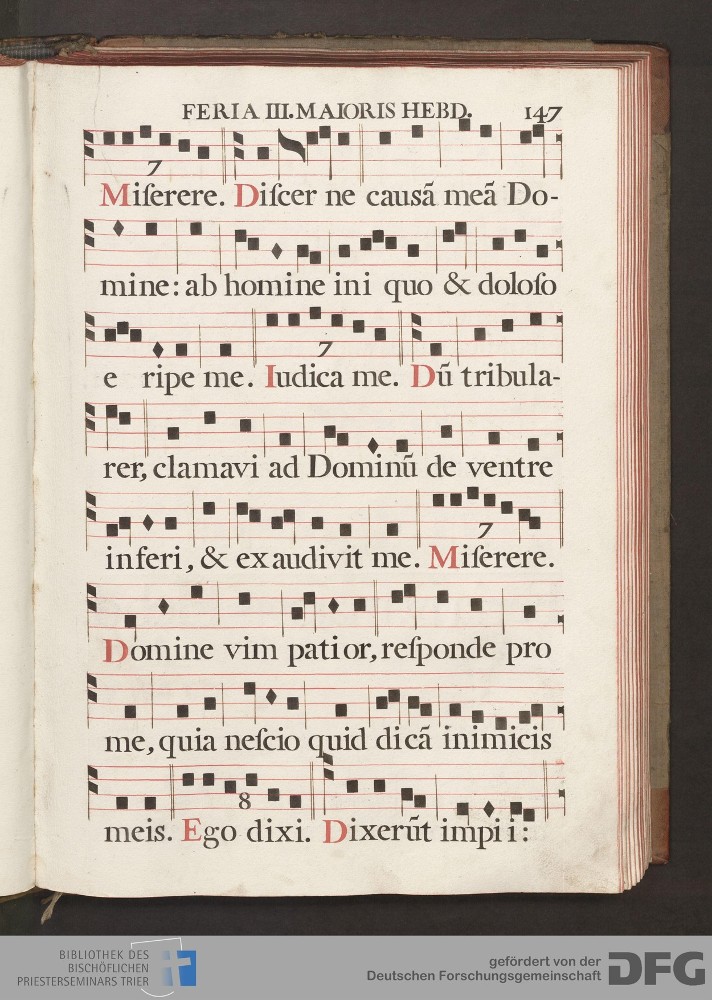 FERIA III. MAIORIS HEBD. 147
7
Miſerere. Diſcer ne causã meã Do-
mine: ab homine ini quo & doloſo
7
e ripe me. Iudica me. Dũ tribula-
rer, clamavi ad Dominũ de ventre
7
inferi, & exaudivit me. Miſerere.
Domine vim patior, reſponde pro
me, quia neſcio quid dicã inimicis
8
meis. Ego dixi. Dixerũt impii:
BIBLIOTHEK DES
BISCHÖFLICHEN
PRIESTERSEMINARS TRIER
gefördert von der
Deutschen Forschungsgemeinschaft
DFG